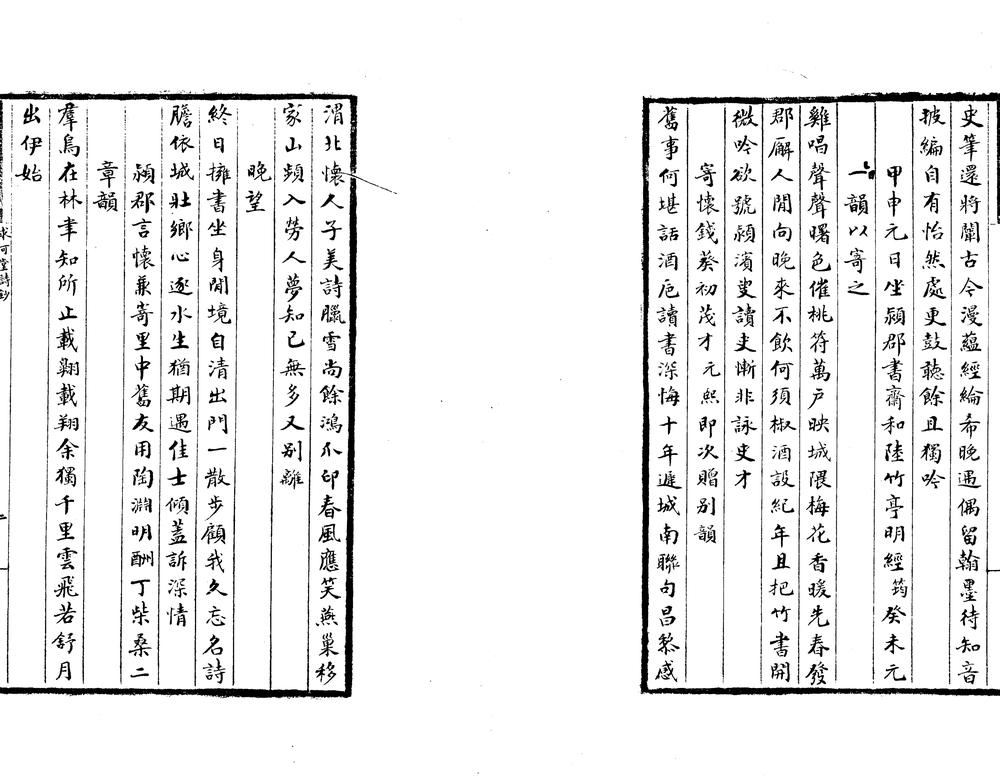 史筆還將闡古今漫蘊經綸希晚遇偶留翰墨待知音
披編自有怡然處更鼓聽餘且獨吟
甲申元日坐潁郡書齋和陸竹亭明經筠癸未元
一韻以寄之
雞唱聲聲曙色催桃符萬戶映城隈梅花香暖先春發
郡廨人閒向晚來不飲何須椒酒設紀年且把竹書開
微吟欲號潁濱叟讀史慚非詠史才
寄懷錢葵初茂才元熙即次贈别韻
舊事何堪話酒巵讀書深悔十年遲城南聯句昌黎感
渭北懷人子美詩臘雪尚餘鴻爪印春風應笑燕巢移
家山頻入勞人夢知已無多又别離
晚望
終日擁書坐身閒境自清出門一散步顧我久忘名詩
膽依城壯鄉心逐水生猶期遇佳士傾蓋訴深情
潁郡言懷兼寄里中舊友用陶淵明酬丁柴桑二
章韻
羣鳥在林聿知所止載翱載翔余獨千里雲飛若舒月
出伊始
求可堂詩鈔
二